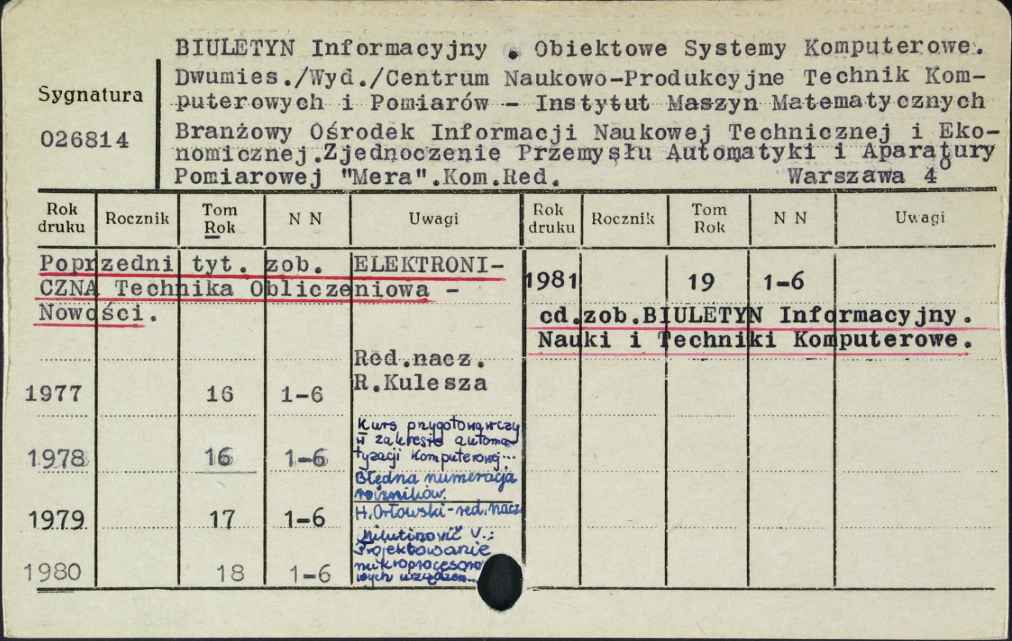 BIULETYN Informacyjny . Obiektowe Systemy Komputerowe.
Dwumies./Wyd./Centrum Naukowo-Produkcyjne Technik Kom-
puterowych i Pomiarów - Instytut Maszyn Matematycznych
Sygnatura
026814
Branżowy Ośrodek Informacji Naukowej Technicznej i Eko-
nomicznej.Zjednoczenie Przemysłu Automatyki i Aparatury
Pomiarowej "Mera".Kom.Red. Warszawa 4°
Rok druku Rocznik Tom Rok N N Uwagi Rok druku Rocznik Tom Rok N N Uwagi
Poprzedni tyt. zob. ELEKTRONI-
CZNA Technika Obliczeniowa -
Nowości.
Red.nacz.
R.Kulesza
1977 16 1-6
Kurs przygotowawczy
w zakresie automa
tyzacji komputerowej...
1978 16 1-6
Błędna numeracja
roczników.
1979 17 1-6
H.Orłowski-red.nacz
Milutinović V.:
Projektowanie
mikroproceso
wych urządzeń...
1980 18 1-6
1981 19 1-6
cd.zob.BIULETYN Informacyjny.
Nauki i Techniki Komputerowe.